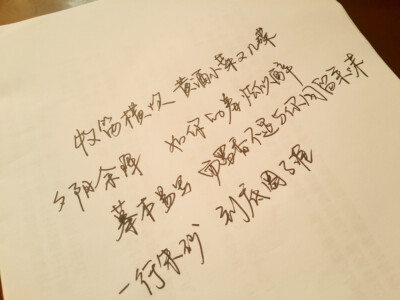 牧笛横吹 黄酒小菜又几碟
夕阳余晖 如你的羞怯似醉
摹本易写 而墨香不退与你同留余味
一行朱砂 到底圈了谁